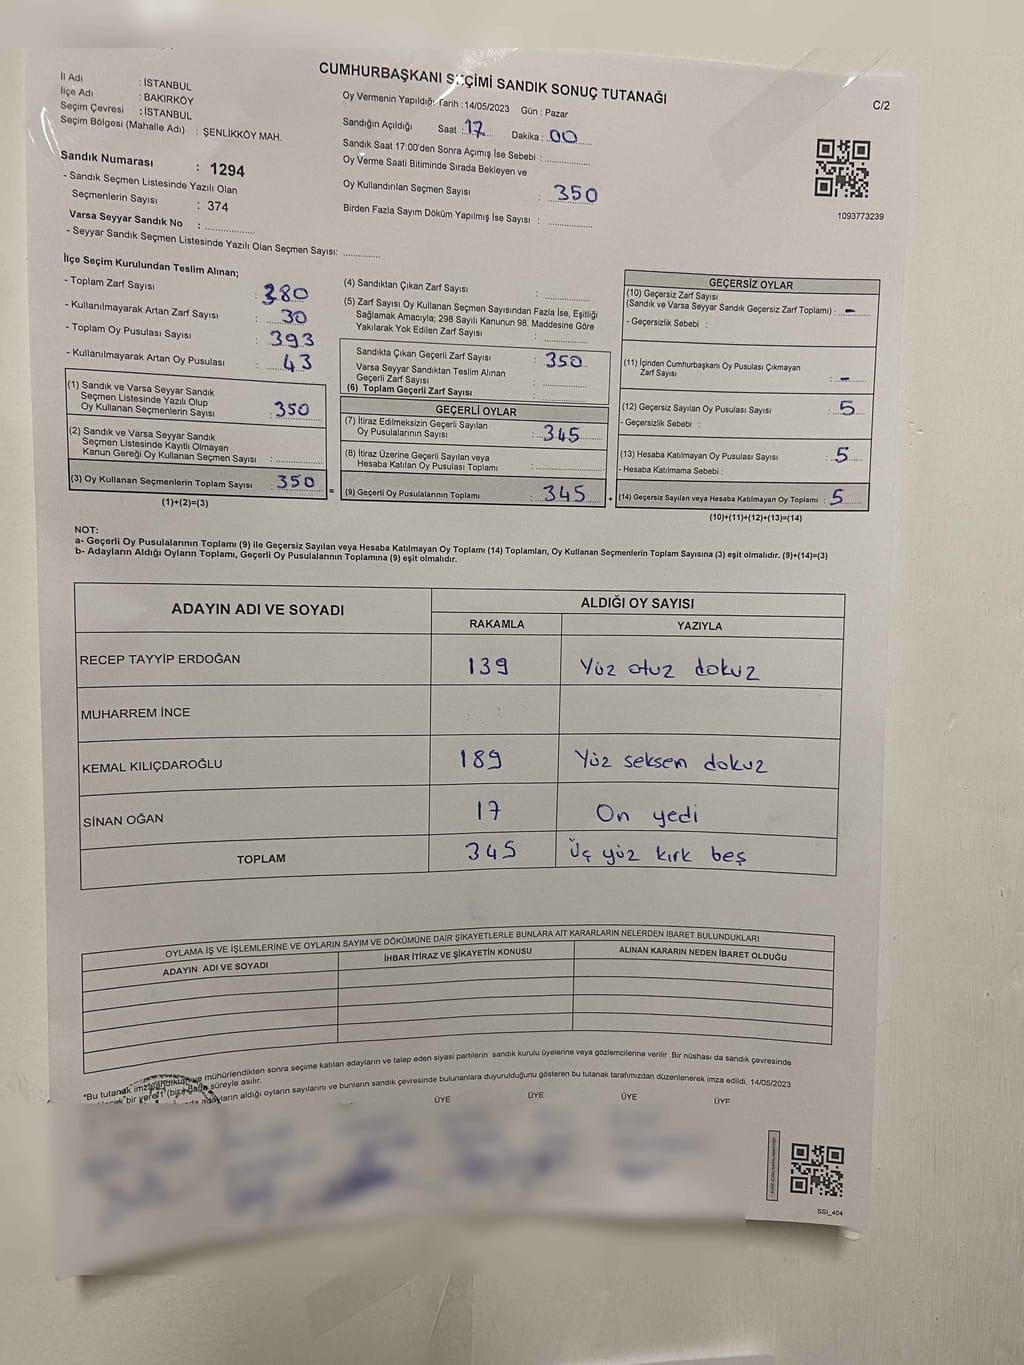 CUMHURBAŞKANI SEÇİMİ SANDIK SONUÇ TUTANAĞI
C/2
İl Adı : İSTANBUL
İlçe Adı : BAKIRKÖY
Seçim Çevresi : İSTANBUL
Seçim Bölgesi (Mahalle Adı) : ŞENLİKKÖY MAH.
Sandık Numarası : 1294
- Sandık Seçmen Listesinde Yazılı Olan
Seçmenlerin Sayısı : 374
Varsa Seyyar Sandık No : ..................
- Seyyar Sandık Seçmen Listesinde Yazılı Olan Seçmen Sayısı: .............
Oy Vermenin Yapıldığı Tarih : 14/05/2023 Gün : Pazar
Sandığın Açıldığı Saat : 17 Dakika : 00
Sandık Saat 17:00'den Sonra Açımış İse Sebebi : ..............
Oy Verme Saati Bitiminde Sırada Bekleyen ve
Oy Kullandırılan Seçmen Sayısı : 350
Birden Fazla Sayım Döküm Yapılmış İse Sayısı : ..............
1093773239
İlçe Seçim Kurulundan Teslim Alınan;
- Toplam Zarf Sayısı : 380
- Kullanılmayarak Artan Zarf Sayısı : 30
- Toplam Oy Pusulası Sayısı : 393
- Kullanılmayarak Artan Oy Pusulası : 43
(1) Sandık ve Varsa Seyyar Sandık
Seçmen Listesinde Yazılı Olup
Oy Kullanan Seçmenlerin Sayısı : 350
(2) Sandık ve Varsa Seyyar Sandık
Seçmen Listesinde Kayıtlı Olmayan
Kanun Gereği Oy Kullanan Seçmen Sayısı : ..............
(3) Oy Kullanan Seçmenlerin Toplam Sayısı : 350
(1)+(2)=(3)
=
(4) Sandıktan Çıkan Zarf Sayısı : ..............
(5) Zarf Sayısı Oy Kullanan Seçmen Sayısından Fazla İse, Eşitliği
Sağlamak Amacıyla; 298 Sayılı Kanunun 98. Maddesine Göre
Yakılarak Yok Edilen Zarf Sayısı : ..............
Sandıkta Çıkan Geçerli Zarf Sayısı : 350
Varsa Seyyar Sandıktan Teslim Alınan
Geçerli Zarf Sayısı : ..............
(6) Toplam Geçerli Zarf Sayısı : ..............
GEÇERLİ OYLAR
(7) İtiraz Edilmeksizin Geçerli Sayılan
Oy Pusulalarının Sayısı : 345
(8) İtiraz Üzerine Geçerli Sayılan veya
Hesaba Katılan Oy Pusulası Toplamı : ..............
(9) Geçerli Oy Pusulalarının Toplamı : 345
+
GEÇERSİZ OYLAR
(10) Geçersiz Zarf Sayısı
(Sandık ve Varsa Seyyar Sandık Geçersiz Zarf Toplamı) : -
- Geçersizlik Sebebi :
(11) İçinden Cumhurbaşkanı Oy Pusulası Çıkmayan
Zarf Sayısı : -
(12) Geçersiz Sayılan Oy Pusulası Sayısı : 5
- Geçersizlik Sebebi :
(13) Hesaba Katılmayan Oy Pusulası Sayısı : 5
- Hesaba Katılmama Sebebi :
(14) Geçersiz Sayılan veya Hesaba Katılmayan Oy Toplamı : 5
(10)+(11)+(12)+(13)=(14)
NOT:
a- Geçerli Oy Pusulalarının Toplamı (9) ile Geçersiz Sayılan veya Hesaba Katılmayan Oy Toplamı (14) Toplamları, Oy Kullanan Seçmenlerin Toplam Sayısına (3) eşit olmalıdır. (9)+(14)=(3)
b- Adayların Aldığı Oyların Toplamı, Geçerli Oy Pusulalarının Toplamına (9) eşit olmalıdır.
ADAYIN ADI VE SOYADI
ALDIĞI OY SAYISI
RAKAMLA YAZIYLA
RECEP TAYYİP ERDOĞAN 139 Yüz otuz dokuz
MUHARREM İNCE
KEMAL KILIÇDAROĞLU 189 Yüz seksen dokuz
SİNAN OĞAN 17 On yedi
TOPLAM 345 Üç yüz kırk beş
OYLAMA İŞ VE İŞLEMLERİNE VE OYLARIN SAYIM VE DÖKÜMÜNE DAİR ŞİKAYETLERLE BUNLARA AİT KARARLARIN NELERDEN İBARET BULUNDUKLARI
ADAYIN ADI VE SOYADI İHBAR İTİRAZ VE ŞİKAYETİN KONUSU ALINAN KARARIN NEDEN İBARET OLDUĞU
*Bu tutanak mühürlendikten sonra seçime katılan adayların ve talep eden siyasi partilerin sandık kurulu üyelerine veya gözlemcilerine verilir. Bir nüshası da sandık çevresinde
bir yere 1 (bir) hafta süreyle asılır.
adayların aldığı oyların sayılarını ve bunların sandık çevresinde bulunanlara duyurulduğunu gösteren bu tutanak tarafımızdan düzenlenerek imza edildi. 14/05/2023
ÜYE ÜYE ÜYE ÜYE
SSI_404